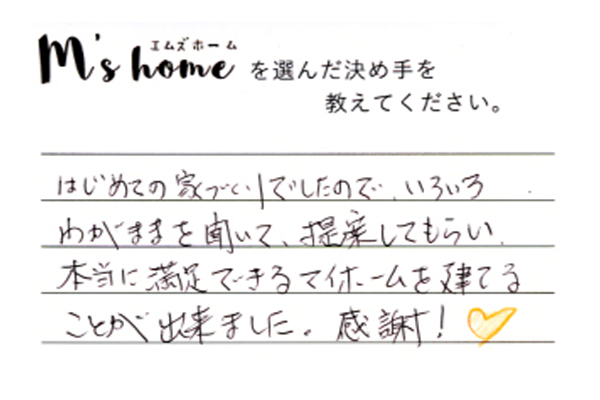 エムズホーム
M's home を選んだ決め手を
教えてください。
はじめての家づくりでしたので、いろいろ
わがままを聞いて、提案してもらい、
本当に満足できるマイホームを建てる
ことが出来ました。感謝!